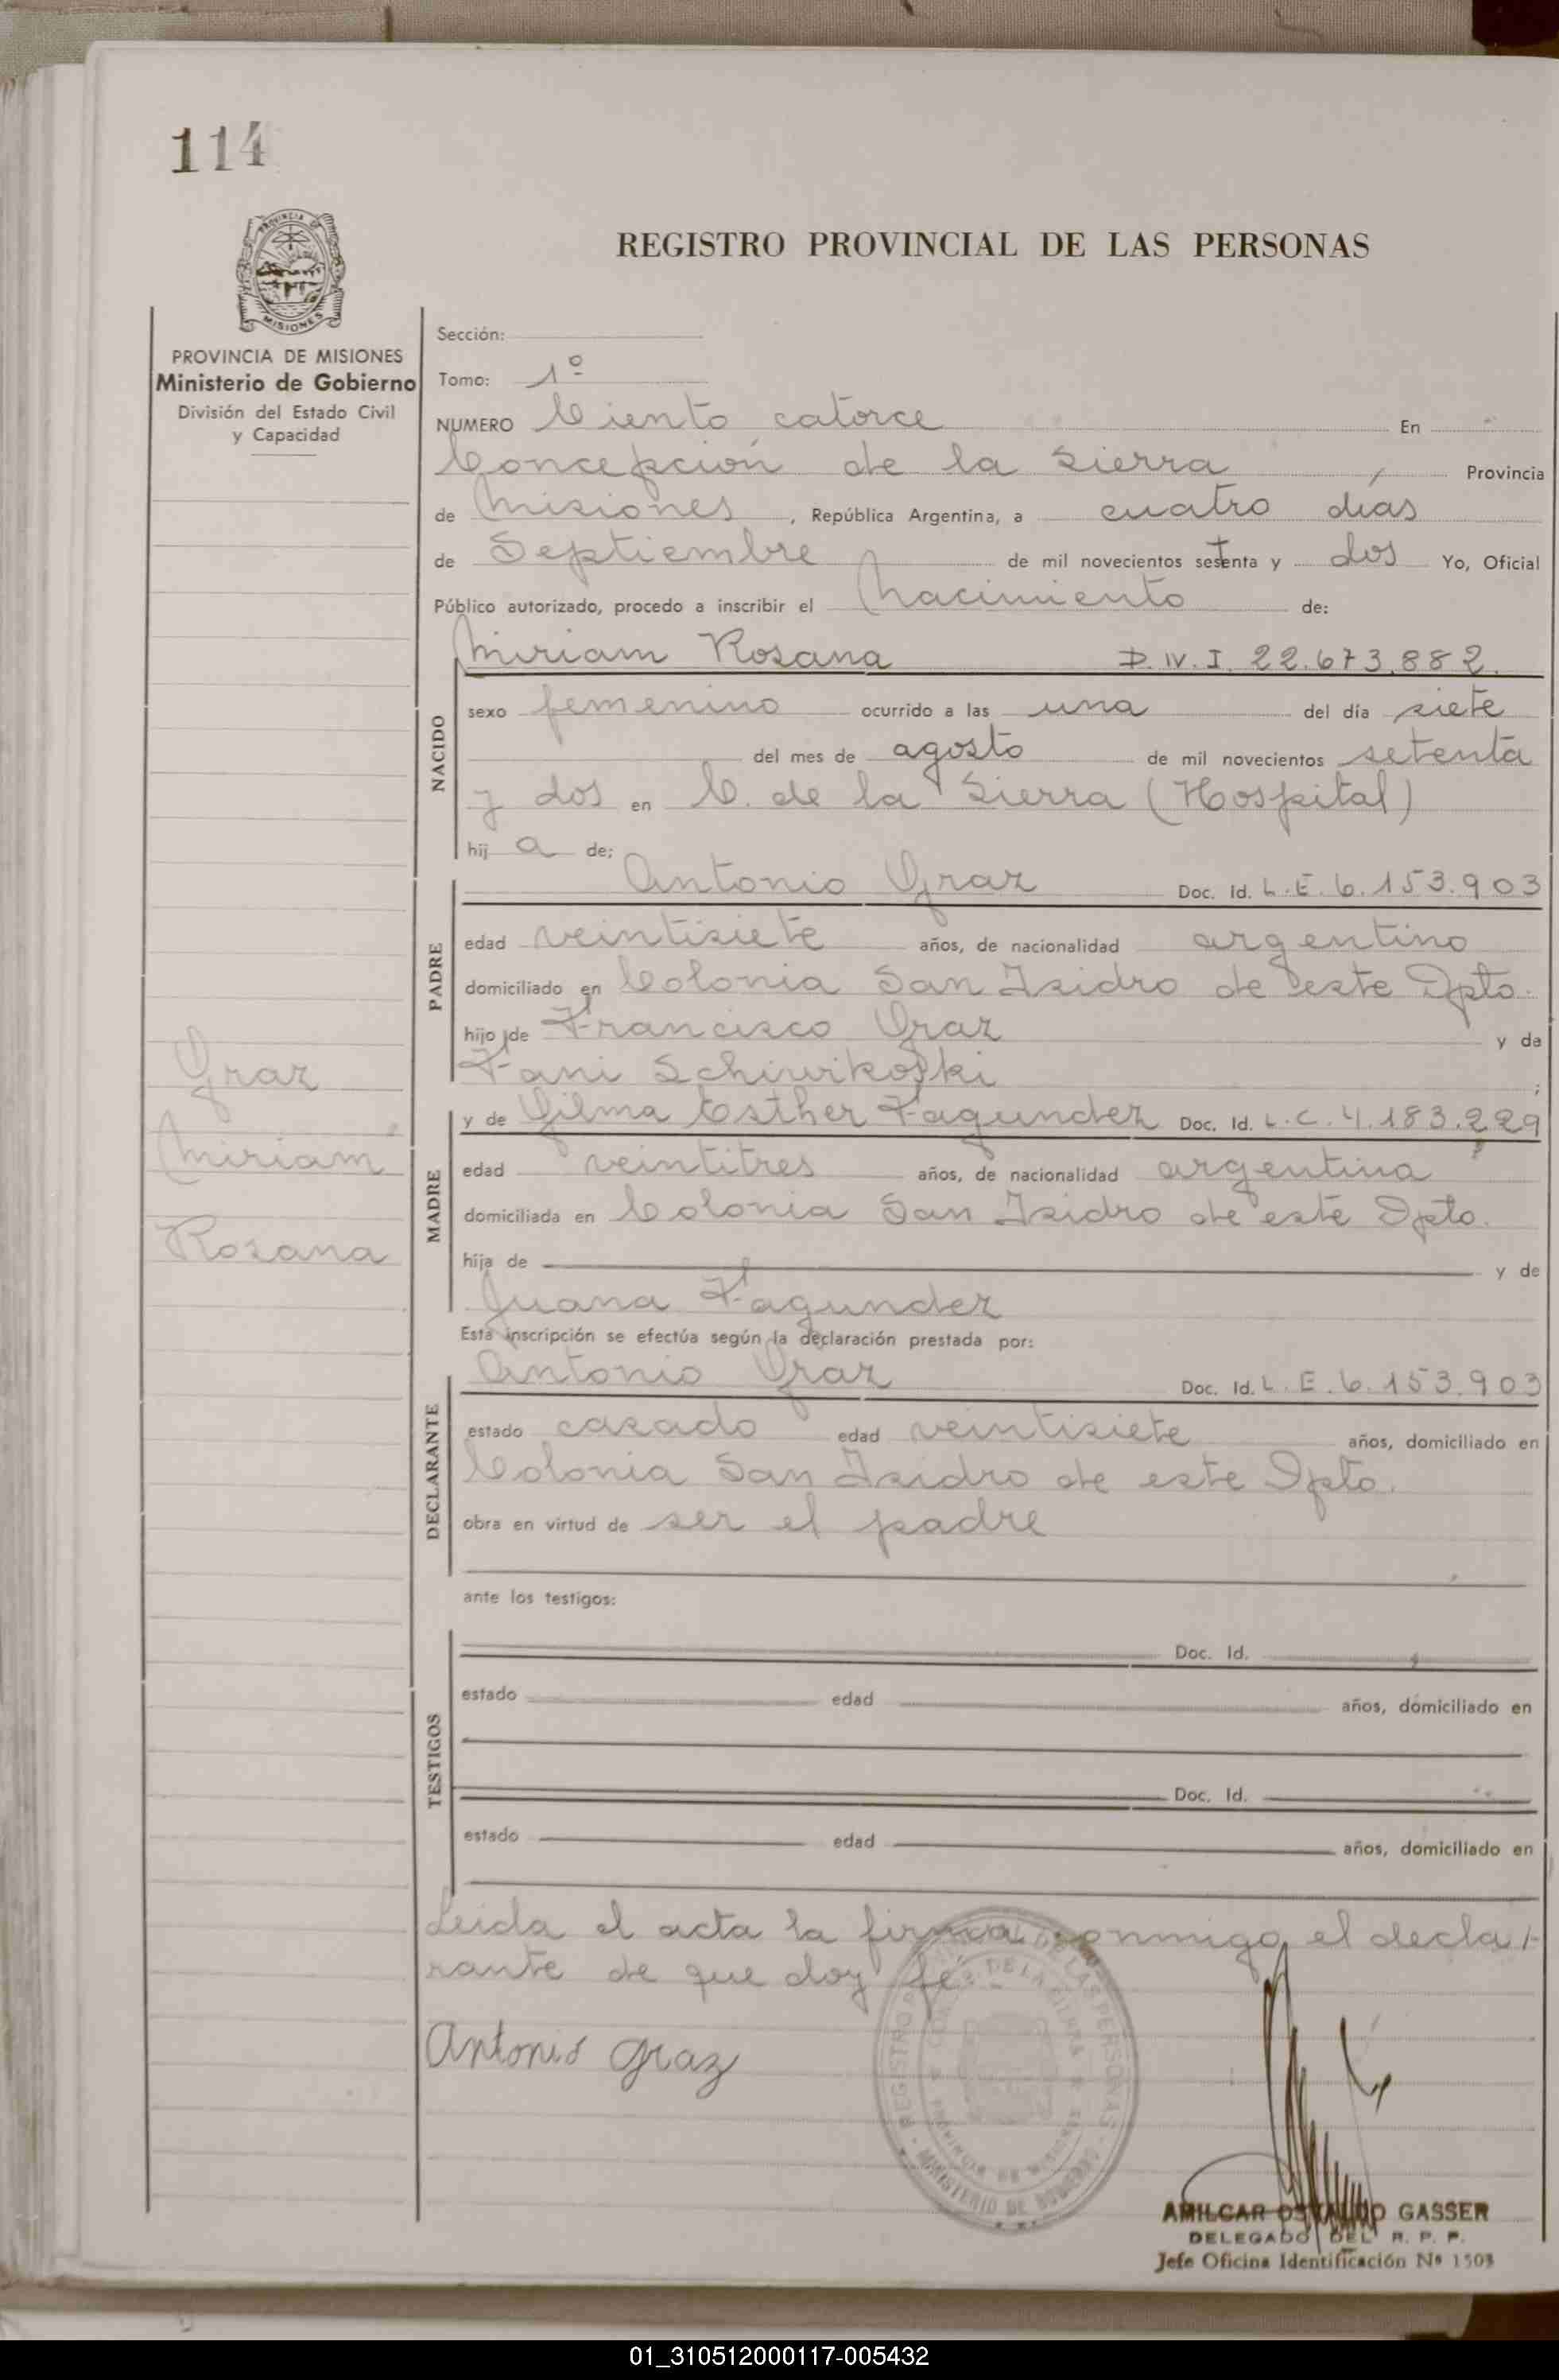 114
PROVINCIA DE
MISIONES
REGISTRO PROVINCIAL DE LAS PERSONAS
PROVINCIA DE MISIONES
Ministerio de Gobierno
División del Estado Civil
y Capacidad
Sección:
Tomo: 1º
NUMERO Ciento catorce En
Concepción de la Sierra, Provincia
de Misiones, República Argentina, a cuatro dias
de Septiembre de mil novecientos setenta y dos Yo, Oficial
Público autorizado, procedo a inscribir el Nacimiento de:
Miriam Rosana D.N.I. 22.673.882.
NACIDO
sexo femenino ocurrido a las una del día siete
del mes de agosto de mil novecientos setenta
y dos en C. de la Sierra (Hospital)
hij a de:
PADRE
Antonio Graz Doc. Id. L.E. 6.153.903
edad veintisiete años, de nacionalidad argentino
domiciliado en Colonia San Isidro de este Dpto.
hijo de Francisco Graz y de
Fani Schiwikoski;
MADRE
y de Gilma Esther Fagundez Doc. Id. L.C. 4.183.229
edad veintitres años, de nacionalidad argentina
domiciliada en Colonia San Isidro de este Dpto.
hija de y de
Juana Fagundez
Graz
Miriam
Rosana
Esta inscripción se efectúa según la declaración prestada por:
DECLARANTE
Antonio Graz Doc. Id. L.E. 6.153.903
estado casado edad veintisiete años, domiciliado en
Colonia San Isidro de este Dpto.
obra en virtud de ser el padre
ante los testigos:
TESTIGOS
Doc. Id.
estado edad años, domiciliado en
Doc. Id.
estado edad años, domiciliado en
Leida el acta la firma conmigo el decla-
rante de que doy fe
Antonio Graz
REGISTRO DE LAS PERSONAS
DE LA SIERRA
PROVINCIA DE MISIONES
MINISTERIO DE GOBIERNO
AMILCAR OSVALDO GASSER
DELEGADO DEL R. P. P.
Jefe Oficina Identificación Nº 1503
01_310512000117-005432